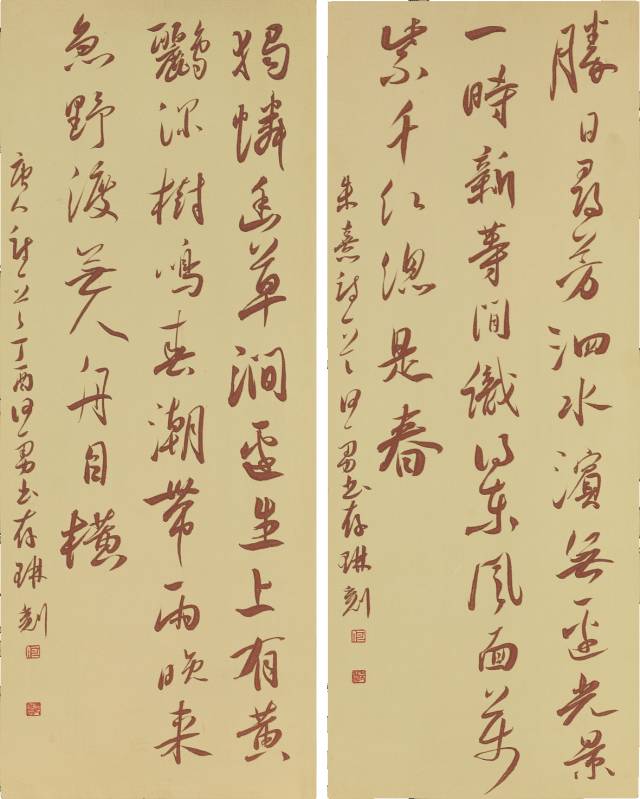 勝日尋芳泗水濱無邊光景
一時新等閒識得東風面萬
紫千红總是春
朱熹詩一首 男书存琳刻
獨憐幽草澗邊生上有黄
鸝深樹鳴春潮帶雨晚来
急野渡無人舟自橫
唐人詩一首丁酉 男书存琳刻